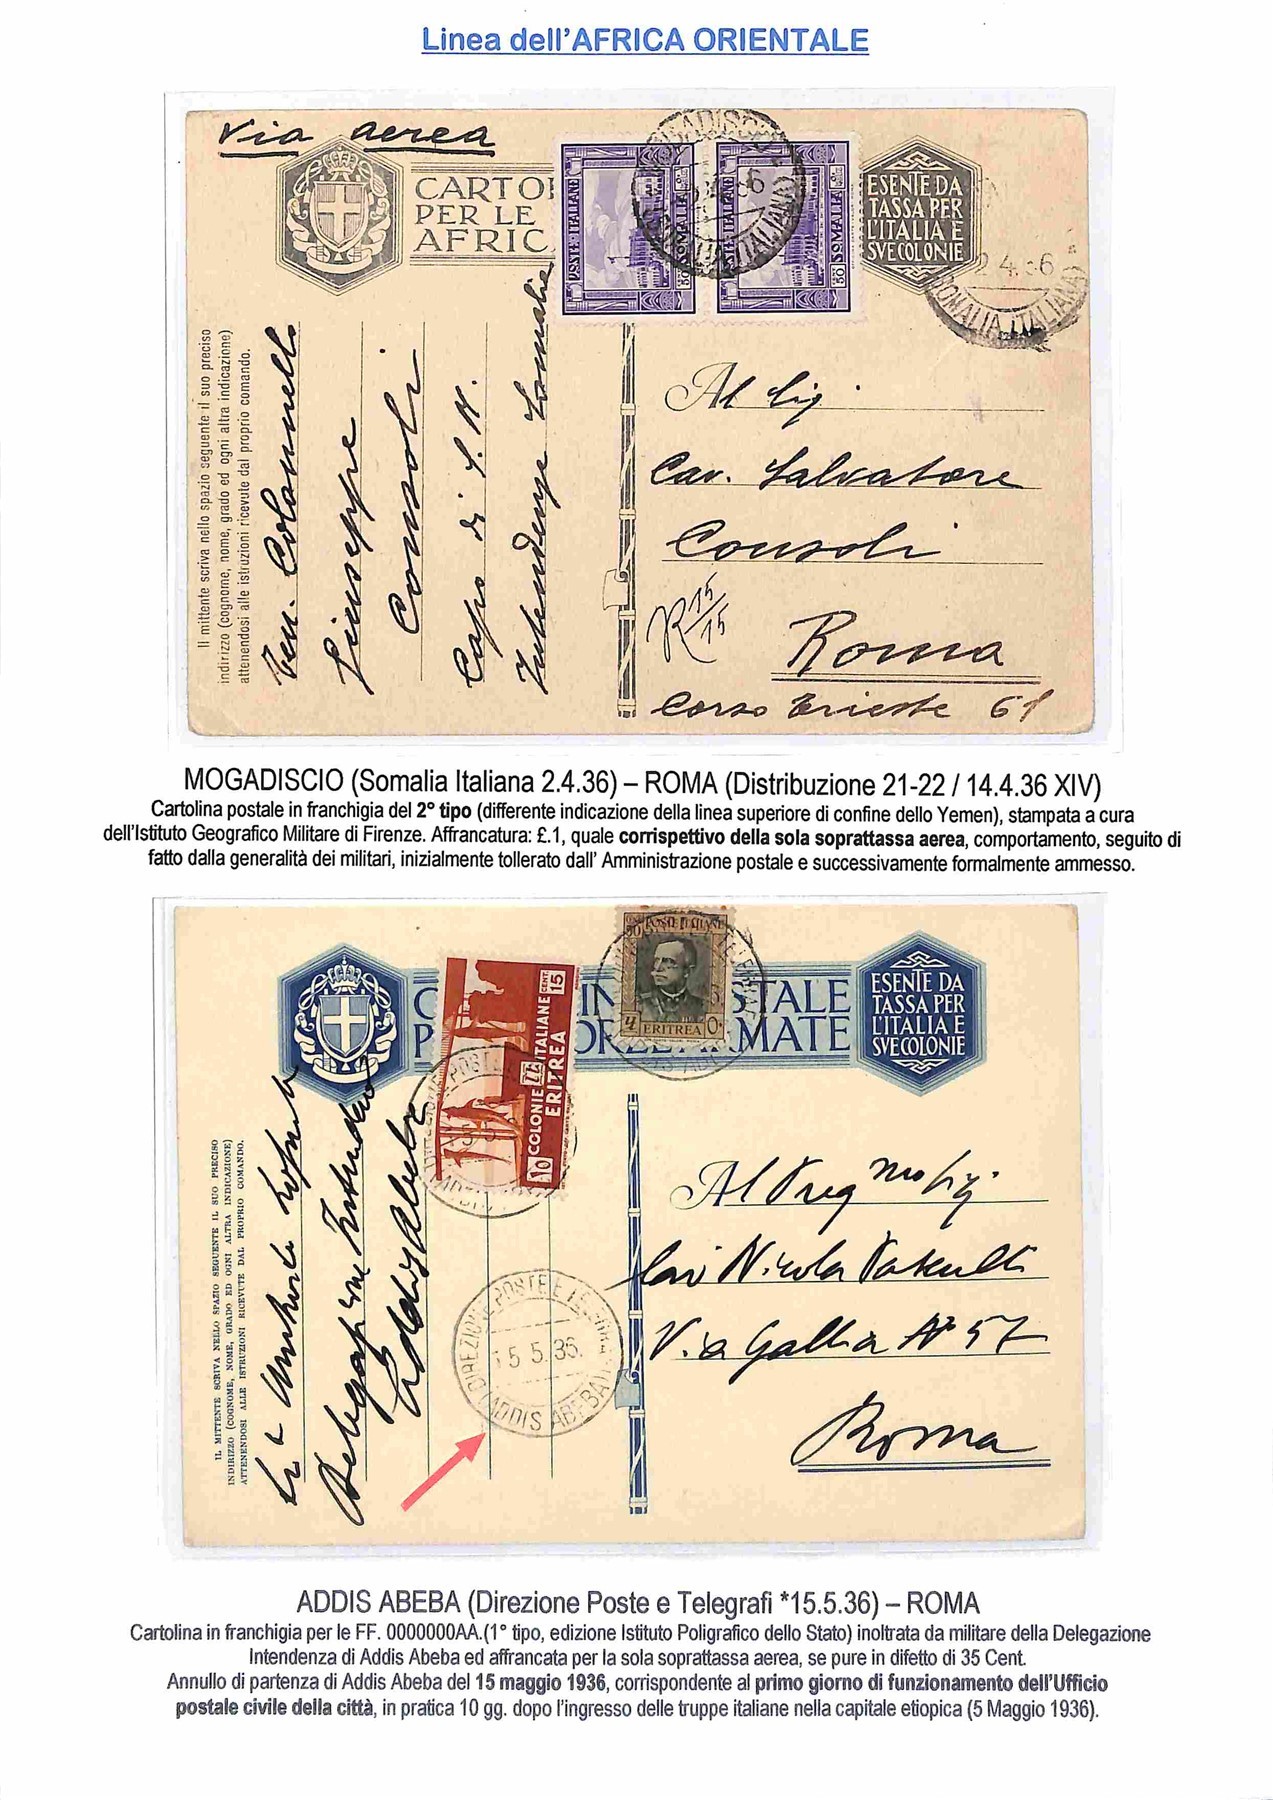 Linea dell'AFRICA ORIENTALE
Via aerea
CARTO
PER LE
AFRIC
POSTE ITALIANE
SOMALIA
50
POSTE ITALIANE
SOMALIA
50
MOGADISCIO
2.4.36
(SOMALIA ITALIANA)
ESENTE DA
TASSA PER
L'ITALIA E
SVE COLONIE
2 4.36
SOMALIA ITALIANA
Il mittente scriva nello spazio seguente il suo preciso
indirizzo (cognome, nome, grado ed ogni altra indicazione)
attenendosi alle istruzioni ricevute dal proprio comando.
Ten. Colonnello
Giuseppe
Consoli
Capo di S.M.
Intendenza Somalia
Al Sig
Cav. Salvatore
Consoli
R 15/15
Roma
Corso Trieste 61
MOGADISCIO (Somalia Italiana 2.4.36) – ROMA (Distribuzione 21-22 / 14.4.36 XIV)
Cartolina postale in franchigia del 2° tipo (differente indicazione della linea superiore di confine dello Yemen), stampata a cura
dell'Istituto Geografico Militare di Firenze. Affrancatura: £.1, quale corrispettivo della sola soprattassa aerea, comportamento, seguito di
fatto dalla generalità dei militari, inizialmente tollerato dall' Amministrazione postale e successivamente formalmente ammesso.
C IN STALE
P ORZE ARMATE
15 CENT
COLONIE ITALIANE
ERITREA
10
POSTE ITALIANE
50
ERITREA
ESENTE DA
TASSA PER
L'ITALIA E
SVE COLONIE
IL MITTENTE SCRIVA NELLO SPAZIO SEGUENTE IL SUO PRECISO
INDIRIZZO (COGNOME, NOME, GRADO ED OGNI ALTRA INDICAZIONE)
ATTENENDOSI ALLE ISTRUZIONI RICEVUTE DAL PROPRIO COMANDO.
Delegazione Intendenza
Addis Abeba
DIREZIONE POSTE E TELEGRAFI
15 5.36.
(ADDIS ABEBA)
Al Preg mo Sig.
Cav Nicola
Via Gallia N° 57
Roma
ADDIS ABEBA (Direzione Poste e Telegrafi *15.5.36) – ROMA
Cartolina in franchigia per le FF. 0000000AA.(1° tipo, edizione Istituto Poligrafico dello Stato) inoltrata da militare della Delegazione
Intendenza di Addis Abeba ed affrancata per la sola soprattassa aerea, se pure in difetto di 35 Cent.
Annullo di partenza di Addis Abeba del 15 maggio 1936, corrispondente al primo giorno di funzionamento dell'Ufficio
postale civile della città, in pratica 10 gg. dopo l'ingresso delle truppe italiane nella capitale etiopica (5 Maggio 1936).